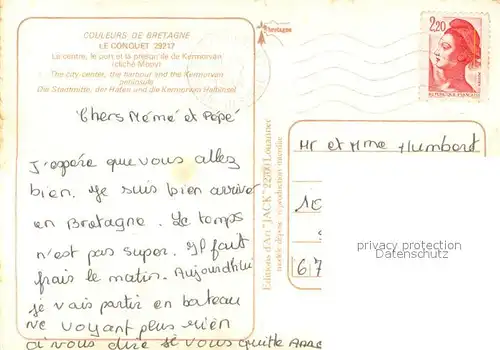 COULEURS DE BRETAGNE
LE CONQUET 29217
Le centre, le port et la presqu'île de Kermorvan
(cliché Mopy)
The city-center, the harbour and the Kermorvan
peninsula
Die Stadtmitte, der Hafen und die Kermorvan Halbinsel
bretagne
2,20
REPUBLIQUE FRANÇAISE
Chers Mémé et Pépé
J'espère que vous allez
bien. Je suis bien arrivé
en Bretagne. Le temps
n'est pas super. Il fait
frais le matin. Aujourd'hui
je vais partir en bateau
ne voyant plus rien
a vous dire je vous quitte
Editions d'Art "JACK" 22700 Louannec
modèle déposé - reproduction interdite
Mr et Mme Humbert
10
67
privacy protection
Datenschutz